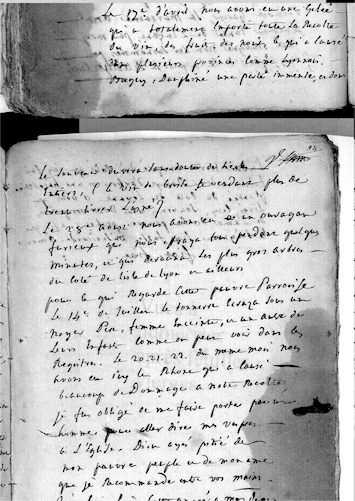 Le 17e d'avril nous avons eu une Gelée
qui a totalement Emporté toute La Recolte
du Vin, des fruits, des noix, ce qui a causé
dans plusieurs provinces comme Lyonnois
Dauphiné une perte immense, et dont
Le Souvenir durera sans doute des siecles
Entiers. Le Vin se vendant plus de
trente livres L'anée
Le 28e aoust nous avons eu un ouragan
furieux qui nous effraya tous pendant quelques
minutes, et qui deracina Les plus gros arbres
du coté de L'isle de Lyon et ailleurs
pour ce qui Regarde Cette pauvre Parroisse
Le 14e de Juillet Le tonnerre ecrasa sous un
Noyer Pere, femme Enceinte, et un autre de
Leurs Enfants Comme on peut voir dans les
Registres. Le 20. 21. 22. du meme mois nous
avons eu icy Le Rhone qui a causé
beaucoup de Dommage a notre Recolte
je fus obligé de me faire porter par un
homme pour aller dire mes vespres
a L'Eglise. Dieu ayes pitié de
mon pauvre peuple et de mon ame
que je Recommande entre vos mains